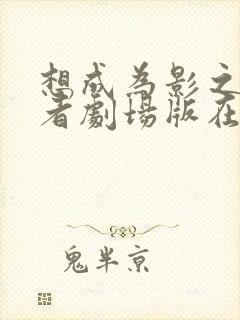 想成为影之
者劇場版在
鬼半京